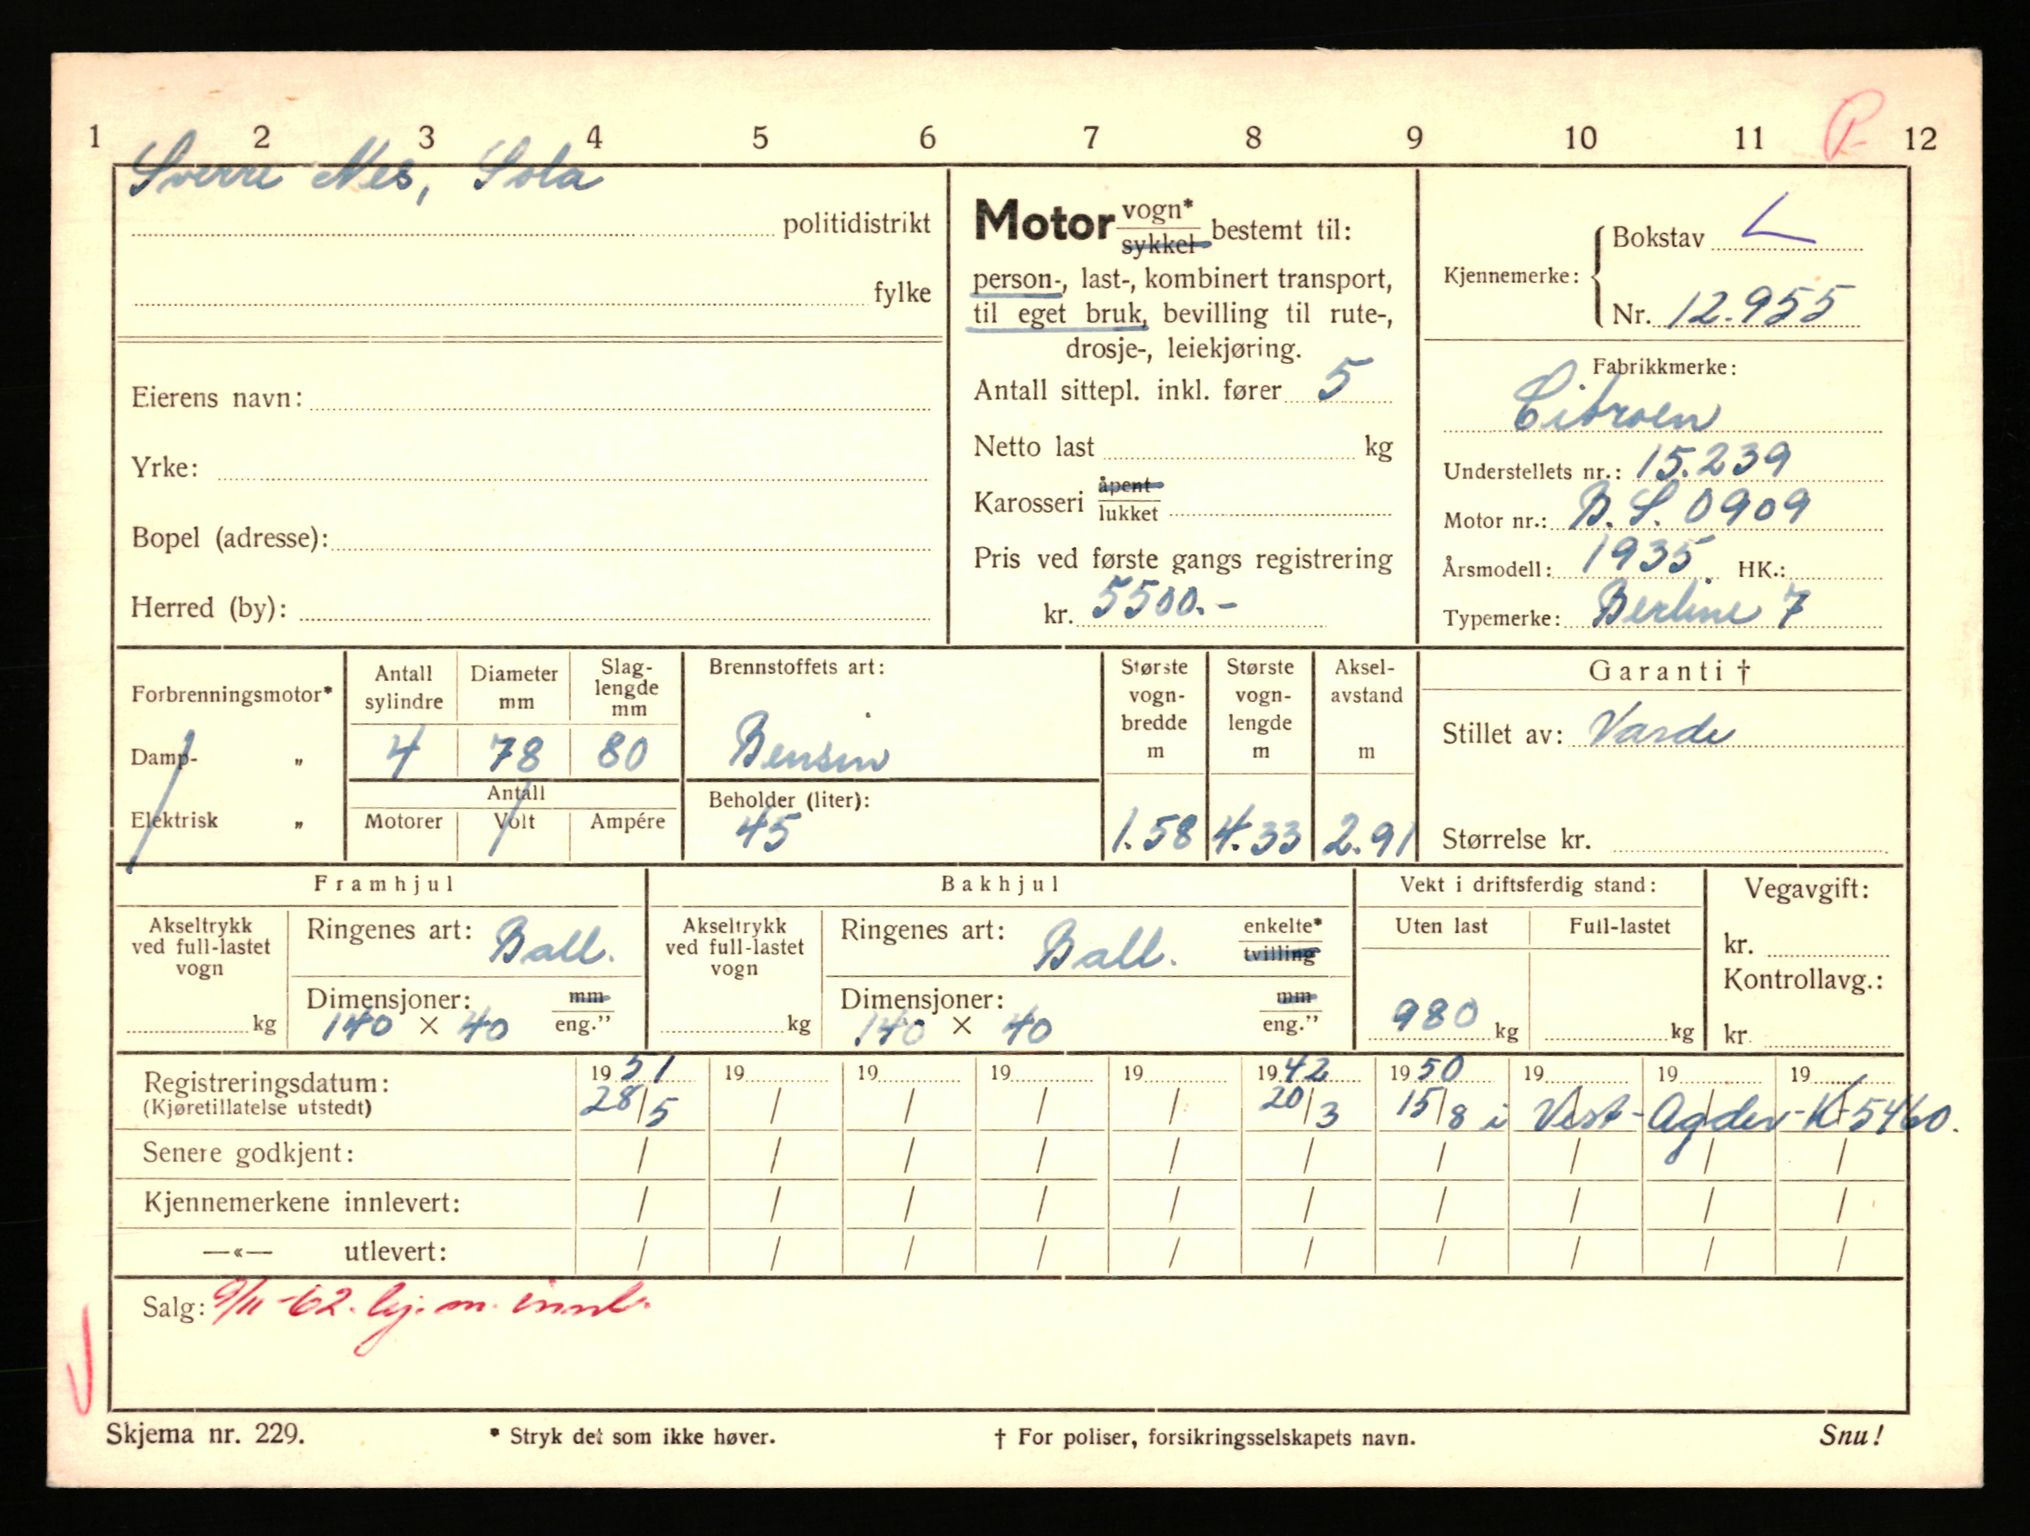 1 2 3 4 5 6 7 8 9 10 11 P- 12
Sverre Nes, Sola
politidistrikt
fylke
Eierens navn:
Yrke:
Bopel (adresse):
Herred (by):
Motor vogn* sykkel bestemt til:
person-, last-, kombinert transport,
til eget bruk, bevilling til rute-,
drosje-, leiekjøring.
Antall sittepl. inkl. fører 5
Netto last kg
Karosseri åpent lukket
Pris ved første gangs registrering
kr. 5500.-
Kjennemerke: Bokstav L
Nr. 12.955
Fabrikkmerke:
Citroen
Understellets nr.: 15.239
Motor nr.: B.S. 0909
Årsmodell: 1935. HK.:
Typemerke: Berline 7
Forbrenningsmotor*
Damp- „
Elektrisk „
Antall sylindre
4
Diameter mm
78
Slag-lengde mm
80
Antall
Motorer Volt Ampére
Brennstoffets art:
Bensin
Beholder (liter):
45
Største vogn-bredde m
1.58
Største vogn-lengde m
4.33
Aksel-avstand m
2.91
Garanti †
Stillet av: Varde
Størrelse kr.
Framhjul
Akseltrykk ved full-lastet vogn
kg
Ringenes art: Ball.
Dimensjoner: mm eng."
140 × 40
Bakhjul
Akseltrykk ved full-lastet vogn
kg
Ringenes art: Ball. enkelte* tvilling
Dimensjoner: mm eng."
140 × 40
Vekt i driftsferdig stand:
Uten last Full-lastet
980 kg kg
Vegavgift:
kr.
Kontrollavg.:
kr.
Registreringsdatum: 1951 19 19 19 19 1942 1950 19 19 19
(Kjøretillatelse utstedt) 28/5 / / / / 20/3 15/8 i Vest-Agder-K-5460.
Senere godkjent: / / / / / / / / / /
Kjennemerkene innlevert: / / / / / / / / / /
—«— utlevert: / / / / / / / / / /
Salg: 9/11-62. kj. m. innl.
Skjema nr. 229. * Stryk det som ikke høver. † For poliser, forsikringsselskapets navn. Snu!